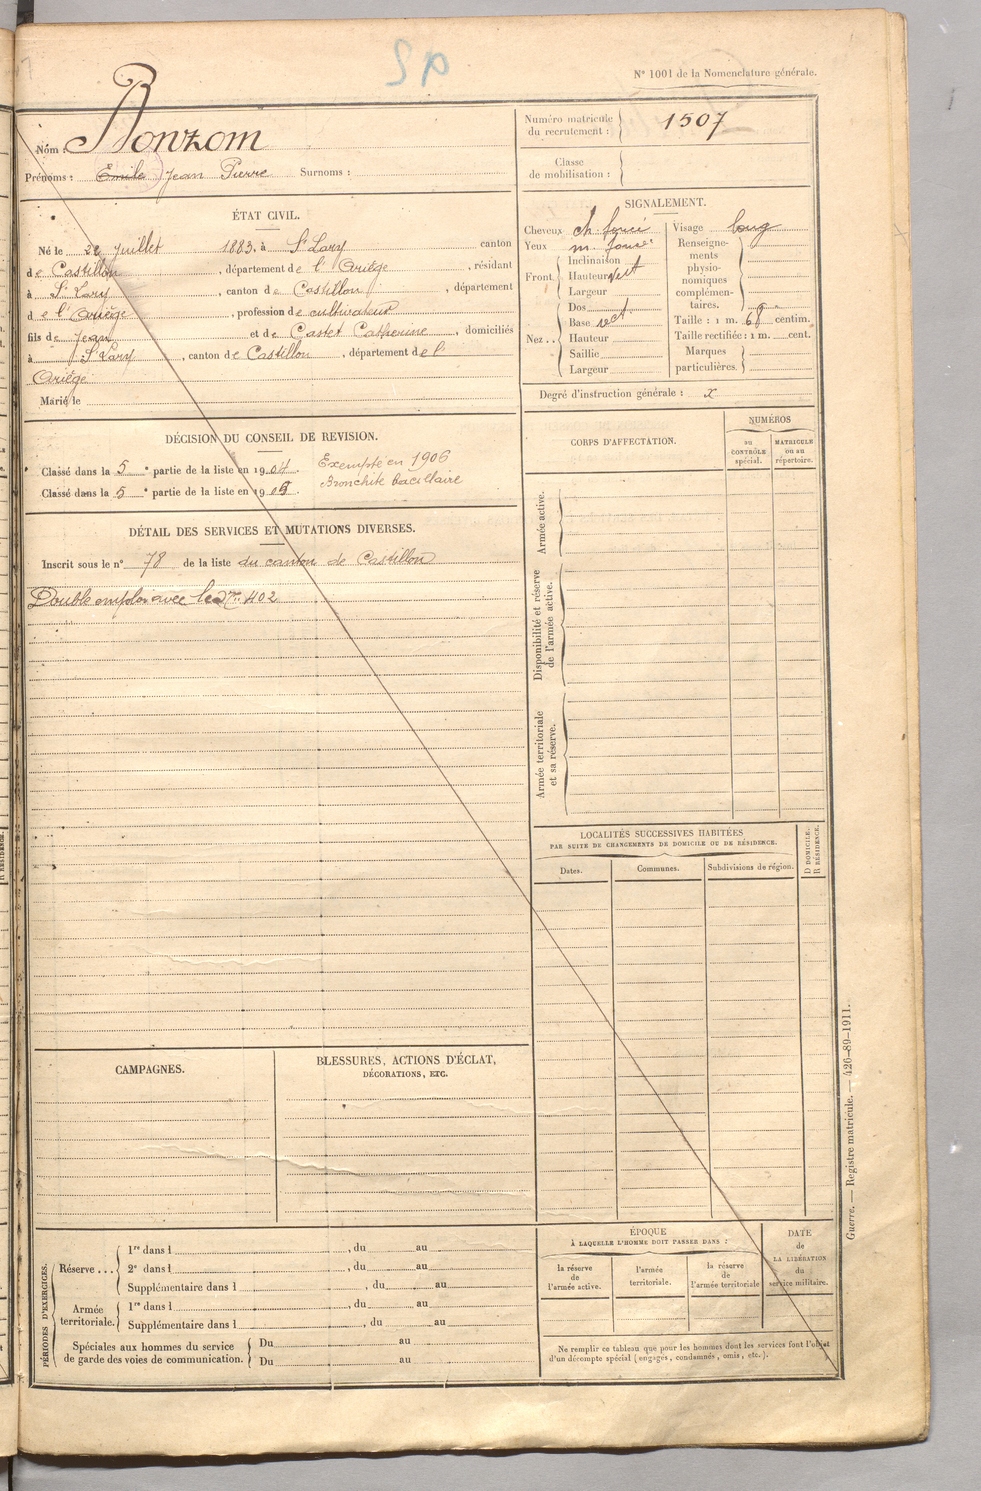 SP
N° 1001 de la Nomenclature générale.
Nom : Bonzom
Prénoms : Emile Jean Pierre Surnoms :
Numéro matricule du recrutement : 1507
Classe de mobilisation :
ÉTAT CIVIL.
Né le 22 Juillet 1883, à St Lary canton
de Castillon, département de l'Ariège, résidant
à St Lary, canton de Castillon, département
de l'Ariège, profession de cultivateur
fils de Jean et de Castet Catherine, domiciliés
à St Lary, canton de Castillon, département de l'
Ariège
Marié le
SIGNALEMENT.
Cheveux ch. foncé
Yeux m. foncé
Front Inclinaison
Hauteur vert
Largeur
Nez Dos
Base vect.
Hauteur
Saillie
Largeur
Visage long
Renseignements physionomiques complémentaires.
Taille : 1 m. 68 centim.
Taille rectifiée : 1 m. cent.
Marques particulières.
Degré d'instruction générale : x
DÉCISION DU CONSEIL DE REVISION.
Classé dans la 5e partie de la liste en 1904.
Classé dans la 5e partie de la liste en 1905.
Exempté en 1906
Bronchite bacillaire
DÉTAIL DES SERVICES ET MUTATIONS DIVERSES.
Inscrit sous le n° 78 de la liste du canton de Castillon
Double emploi avec le No 402
CORPS D'AFFECTATION.
NUMÉROS
au CONTRÔLE spécial.
MATRICULE ou au répertoire.
Armée active.
Disponibilité et réserve de l'armée active.
Armée territoriale et sa réserve.
LOCALITÉS SUCCESSIVES HABITÉES
PAR SUITE DE CHANGEMENTS DE DOMICILE OU DE RÉSIDENCE.
Dates.
Communes.
Subdivisions de région.
D DOMICILE.
R RÉSIDENCE.
CAMPAGNES.
BLESSURES, ACTIONS D'ÉCLAT,
DÉCORATIONS, ETC.
PÉRIODES D'EXERCICES.
Réserve ...
1re dans l , du au
2e dans l , du au
Supplémentaire dans l , du au
Armée territoriale.
1re dans l , du au
Supplémentaire dans l , du au
Spéciales aux hommes du service
de garde des voies de communication.
Du au
Du au
ÉPOQUE
À LAQUELLE L'HOMME DOIT PASSER DANS :
la réserve de l'armée active.
l'armée territoriale.
la réserve de l'armée territoriale
DATE de LA LIBÉRATION du service militaire.
Ne remplir ce tableau que pour les hommes dont les services font l'objet
d'un décompte spécial (engagés, condamnés, omis, etc.).
Guerre. — Registre matricule. — 426-89-1911.